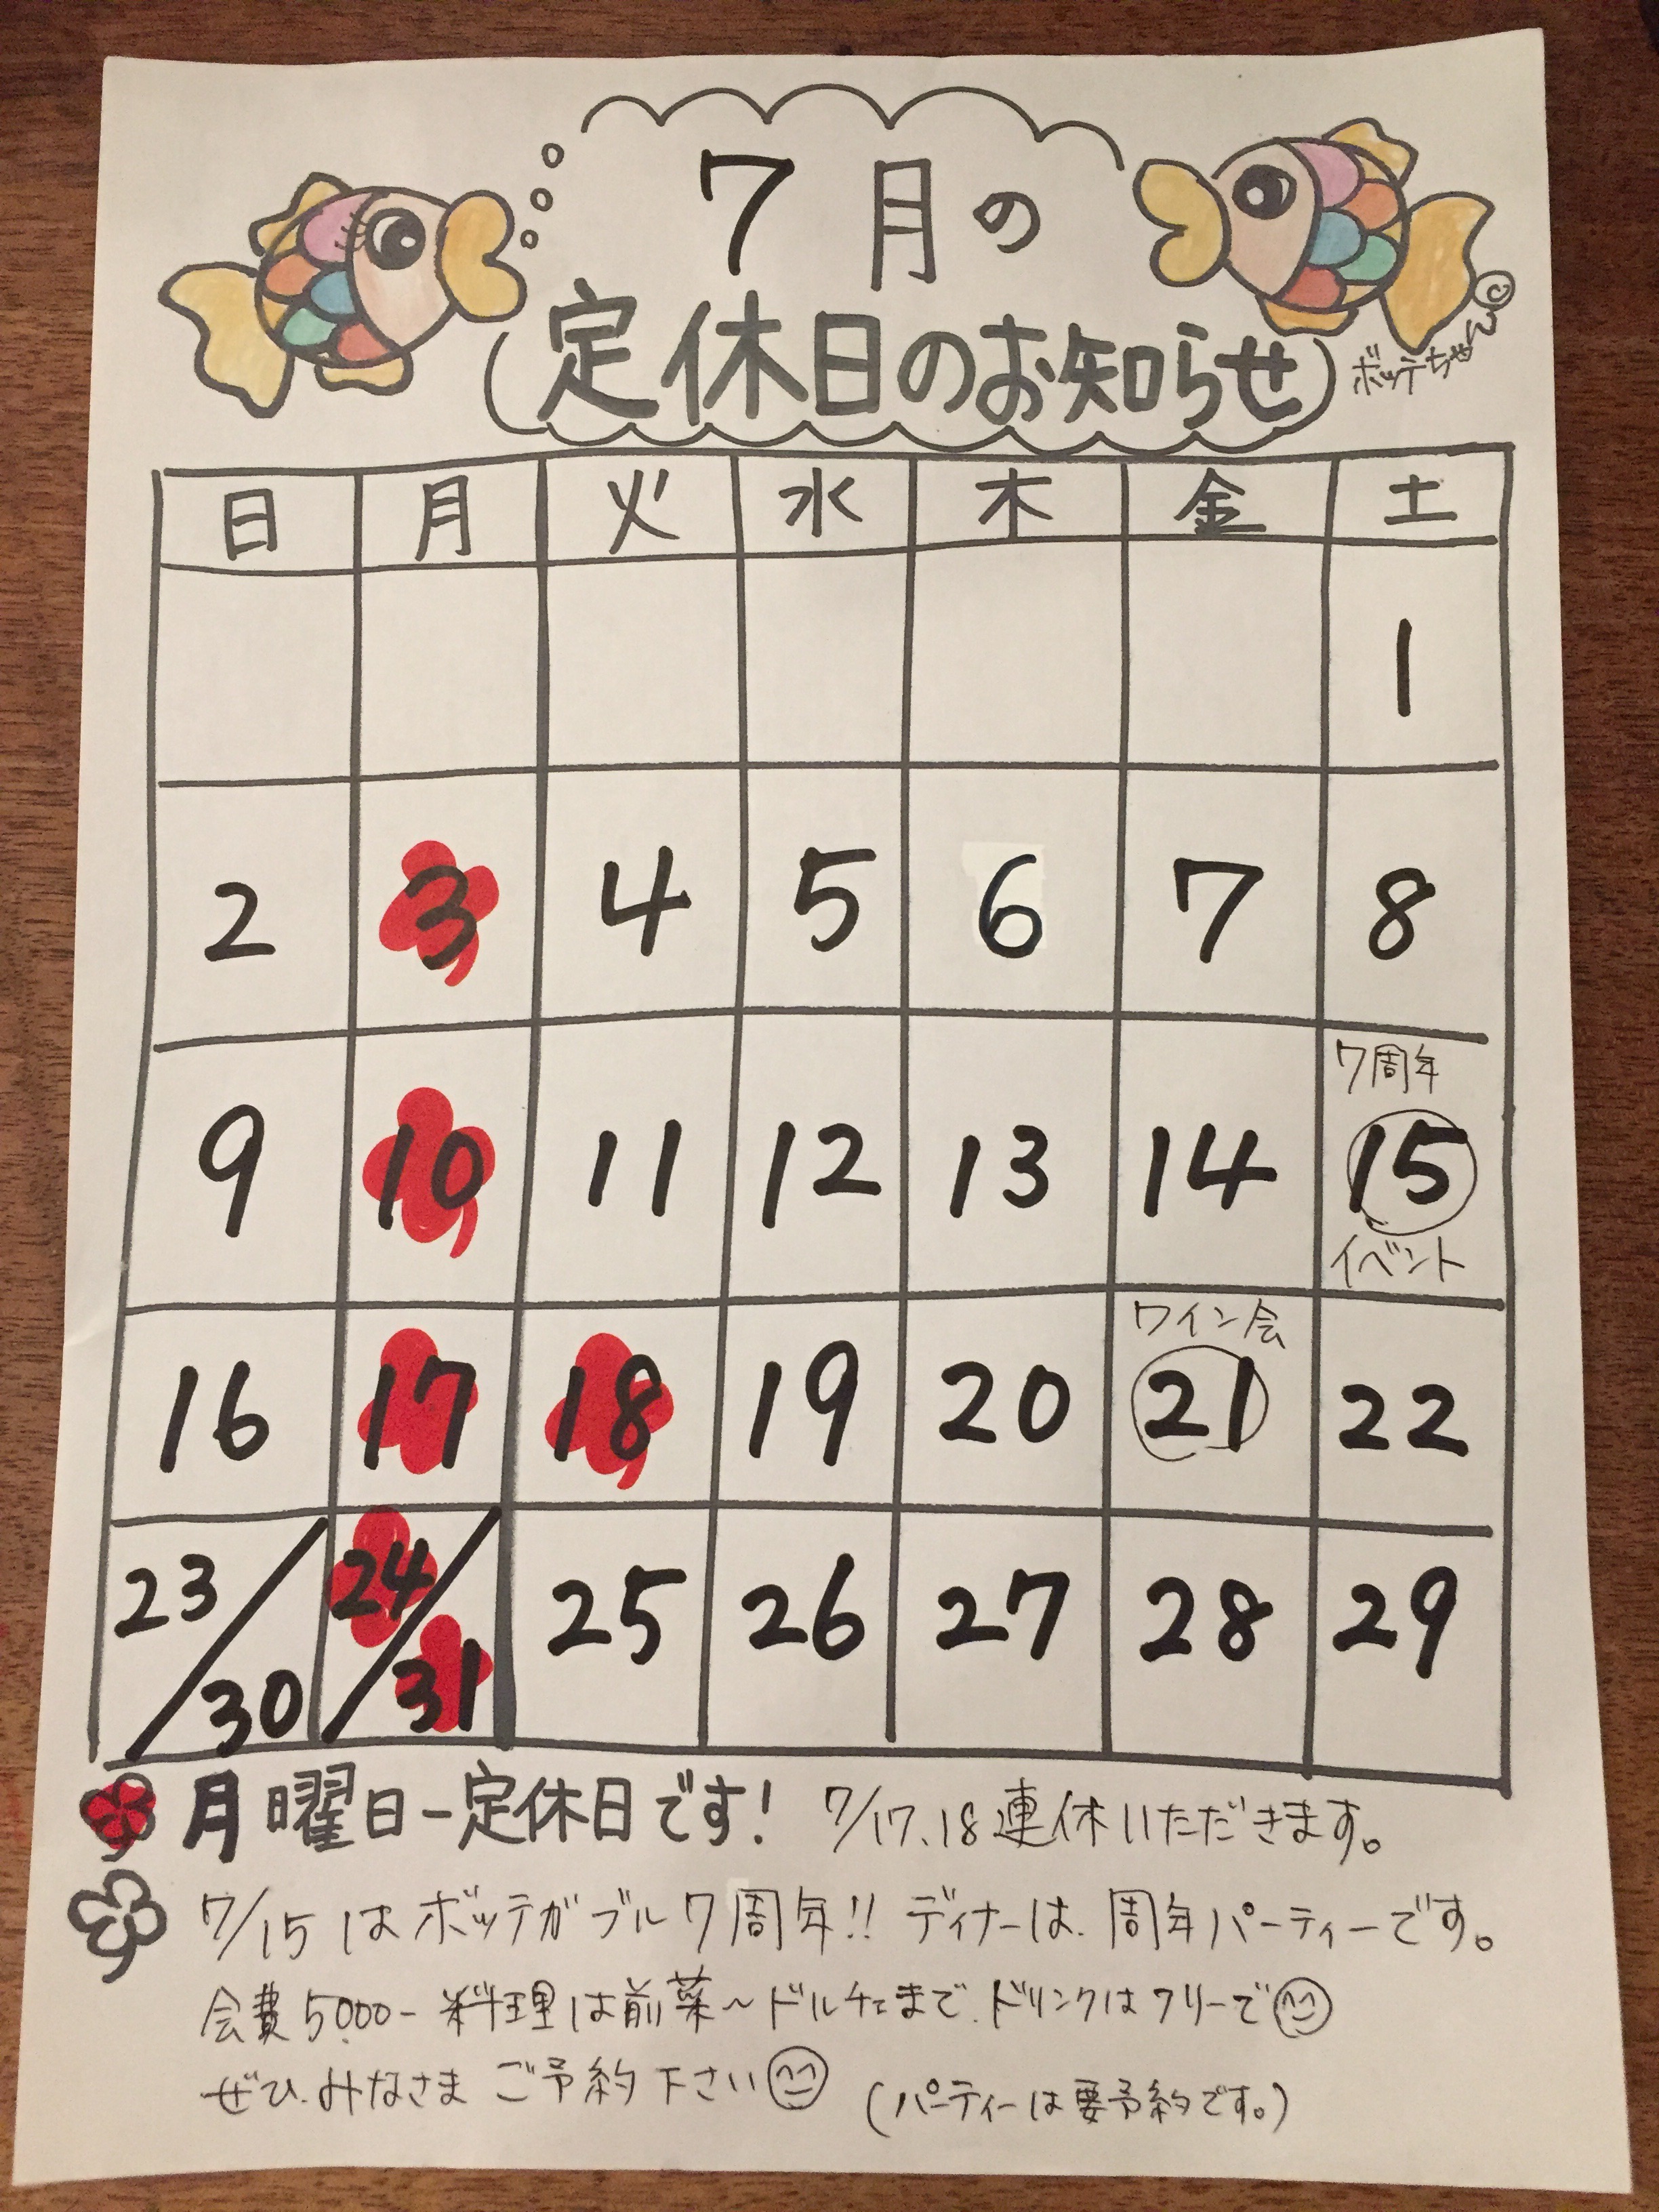 7月の
定休日のお知らせ
ボッテちゃん
日 月 火 水 木 金 土
1
2 3 4 5 6 7 8
7周年
9 10 11 12 13 14 15
イベント
ワイン会
16 17 18 19 20 21 22
23/30 24/31 25 26 27 28 29
月曜日-定休日です! 7/17、18連休いただきます。
7/15はボッテガブル7周年!! ディナーは、周年パーティーです。
会費5000- 料理は前菜~ドルチェまで、ドリンクはフリーで
ぜひ、みなさまご予約下さい (パーティーは要予約です。)